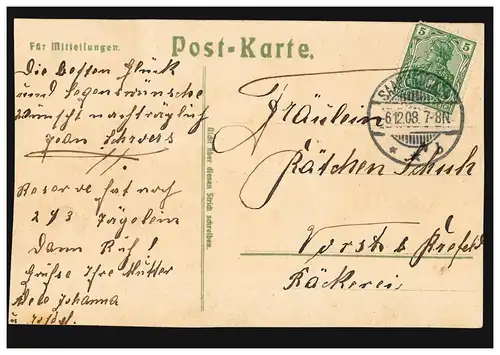 Für Mitteilungen.
Post-Karte.
Die besten Glück
und Segenswünsche
wünscht nachträglich
Jean Schroers
Reserve hat noch
273 Tägelein
Dann Ruh!
Grüße Ihre Mutter
Johanna
Nicht über diesen Strich schreiben.
5 5
6.12.08. 7-8N.
* b
Fräulein
Kätchen Schuh
Vorst b Krefeld
Bäckerei